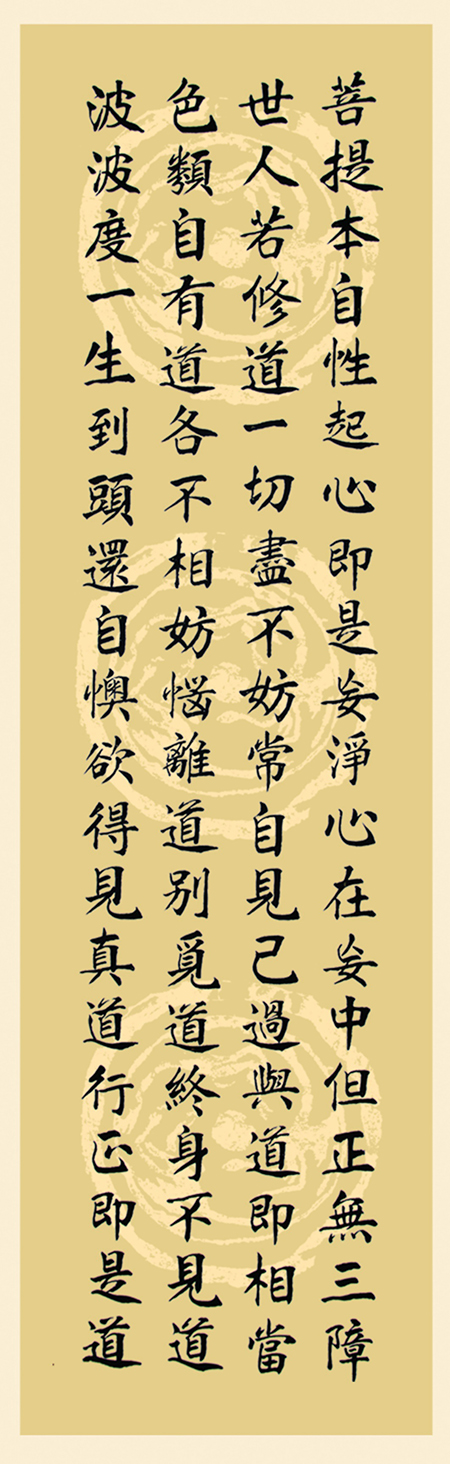 菩提本自性起心即是妄淨心在妄中但正無三障
世人若修道一切盡不妨常自見己過與道即相當
色類自有道各不相妨惱離道別覓道終身不見道
波波度一生到頭還自懊欲得見真道行正即是道